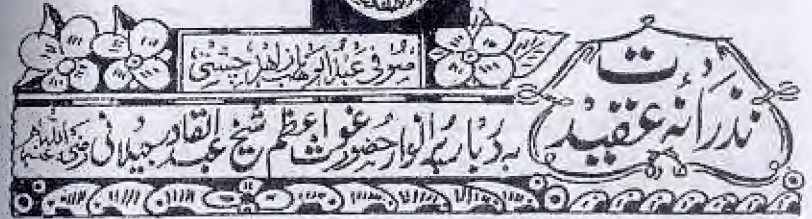 نذرانۂ عقیدت
صوفی عبدالرب زاہد چشتی
بہ دربار پر انوار حضور غوث اعظم شیخ عبد القادر جیلانی رضی اللہ عنہ